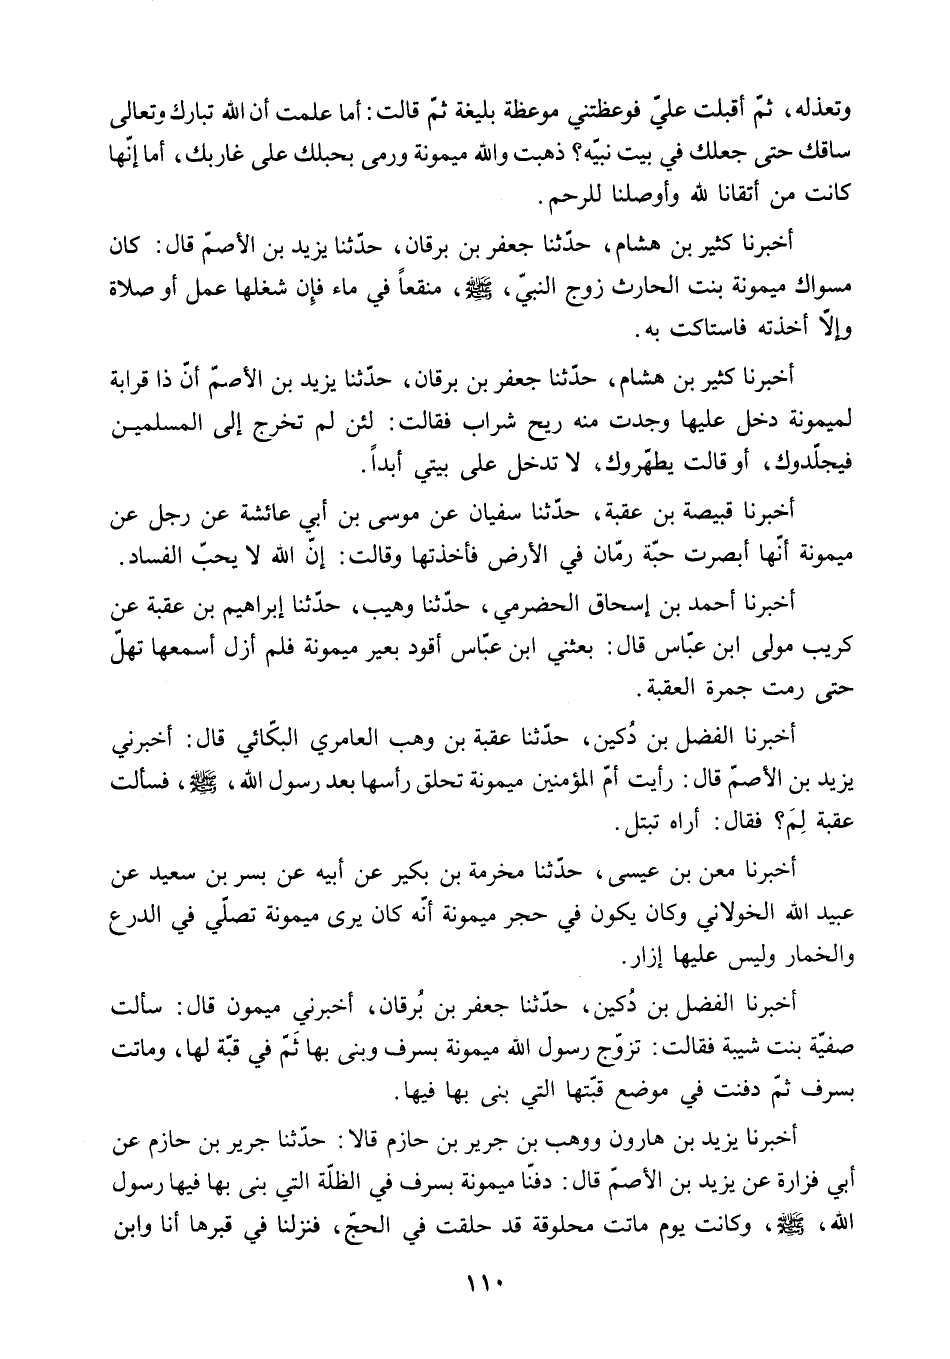 وتعذله، ثمّ أقبلت عليّ فوعظتني موعظة بليغة ثمّ قالت: أما علمت أن الله تبارك وتعالى
ساقك حتى جعلك في بيت نبيّه؟ ذهبت والله ميمونة ورمى بحبلك على غاربك، أما إنّها
كانت من أتقانا لله وأوصلنا للرحم.
أخبرنا كثير بن هشام، حدّثنا جعفر بن برقان، حدّثنا يزيد بن الأصمّ قال: كان
مسواك ميمونة بنت الحارث زوج النبيّ، ﷺ، منقعاً في ماء فإن شغلها عمل أو صلاة
وإلّا أخذته فاستاكت به.
أخبرنا كثير بن هشام، حدّثنا جعفر بن برقان، حدّثنا يزيد بن الأصمّ أنّ ذا قرابة
لميمونة دخل عليها وجدت منه ريح شراب فقالت: لئن لم تخرج إلى المسلمين
فيجلّدوك، أو قالت يطهّروك، لا تدخل على بيتي أبداً.
أخبرنا قبيصة بن عقبة، حدّثنا سفيان عن موسى بن أبي عائشة عن رجل عن
ميمونة أنّها أبصرت حبّة رمّان في الأرض فأخذتها وقالت: إنّ الله لا يحبّ الفساد.
أخبرنا أحمد بن إسحاق الحضرمي، حدّثنا وهيب، حدّثنا إبراهيم بن عقبة عن
كريب مولى ابن عبّاس قال: بعثني ابن عبّاس أقود بعير ميمونة فلم أزل أسمعها تهلّ
حتى رمت جمرة العقبة.
أخبرنا الفضل بن دُكين، حدّثنا عقبة بن وهب العامري البكّائي قال: أخبرني
يزيد بن الأصمّ قال: رأيت أمّ المؤمنين ميمونة تحلق رأسها بعد رسول الله، ﷺ، فسألت
عقبة لِمَ؟ فقال: أراه تبتل.
أخبرنا معن بن عيسى، حدّثنا مخرمة بن بكير عن أبيه عن بسر بن سعيد عن
عبيد الله الخولاني وكان يكون في حجر ميمونة أنّه كان يرى ميمونة تصلّي في الدرع
والخمار وليس عليها إزار.
أخبرنا الفضل بن دُكين، حدّثنا جعفر بن بُرقان، أخبرني ميمون قال: سألت
صفيّة بنت شيبة فقالت: تزوّج رسول الله ميمونة بسرف وبنى بها ثَمّ في قبّة لها، وماتت
بسرف ثمّ دفنت في موضع قبّتها التي بنى بها فيها.
أخبرنا يزيد بن هارون ووهب بن جرير بن حازم قالا: حدّثنا جرير بن حازم عن
أبي فزارة عن يزيد بن الأصمّ قال: دفنّا ميمونة بسرف في الظلّة التي بنى بها فيها رسول
الله، ﷺ، وكانت يوم ماتت محلوقة قد حلقت في الحجّ، فنزلنا في قبرها أنا وابن
١١٠